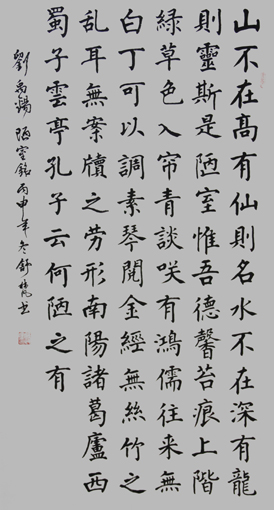 山不在髙有仙則名水不在深有龍
則靈斯是陋室惟吾德馨苔痕上階
綠草色入帘青談咲有鴻儒往来無
白丁可以調素琴閱金經無絲竹之
乱耳無案牘之勞形南陽諸葛廬西
蜀子雲亭孔子云何陋之有
劉禹錫 陋室銘丙申年冬舒